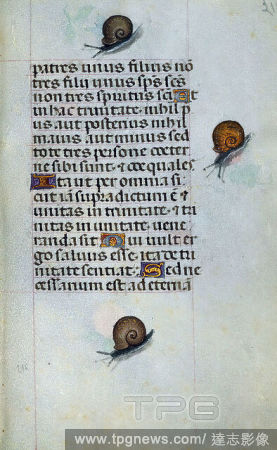 patres unus filius nõ
tres filij unus sp̃s sc̃s
non tres spiritus sc̃i Et
in hac trinitate nihil p
us aut posterius nihil
maius aut minus sed
tote tres persone coeter
ne sibi sunt & coequales
Ita ut per omnia si
cut iã supra dictum ẽ &
unitas in trinitate & tri
nitas in unitate uene
randa sit Qui uult er
go saluus esse ita de tri
nitate sentiat Sed ne
cessarium est ad eternã
TPG
www.tpgnews.com/達志影像